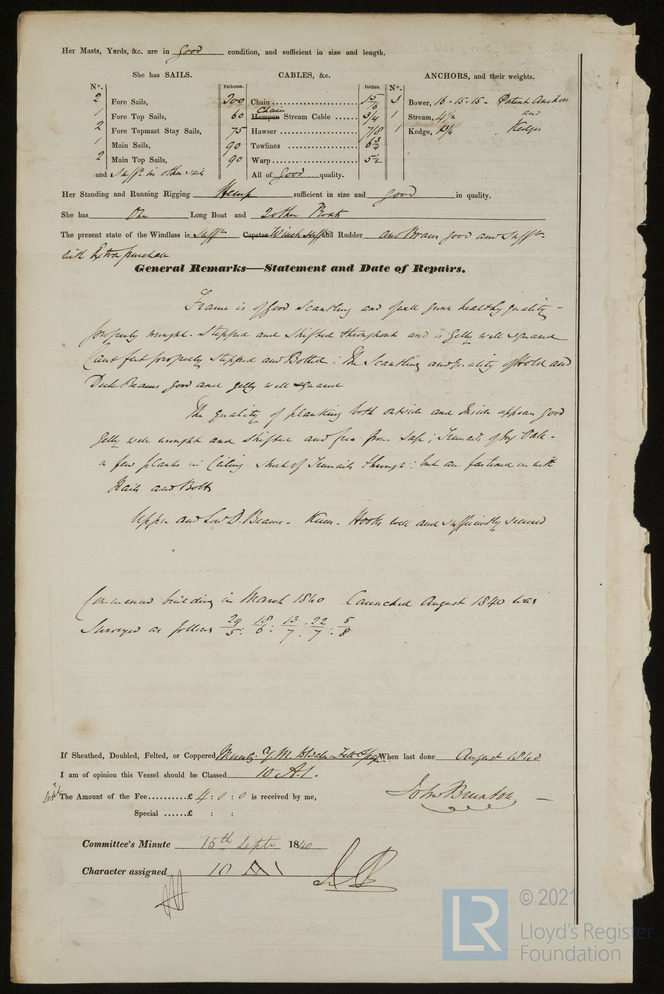 Her Masts, Yards, &c. are in good condition, and sufficient in size and length.
She has SAILS. CABLES, &c. ANCHORS, and their weights.
N°. Fathoms. Inches. N°.
2 Fore Sails, 200 Chain 15/16 3 Bower, 16 - 15 - 15 - Patent Anchors
1 Fore Top Sails, 60 Chain Hempen Stream Cable 3/4 1 Stream, and
2 Fore Topmast Stay Sails, 75 Hawser 7/8 1 Kedge, Kedges
1 Main Sails, 90 Towlines
2 Main Top Sails, 90 Warp 5½
and Suff.t in other sails All of good quality.
Her Standing and Running Rigging Hemp sufficient in size and good in quality.
She has One Long Boat and 2 other Boats
The present state of the Windlass is Suff.t Capstan Winch Suff.t and Rudder and good and Suff.t
with Extra purchase
General Remarks—Statement and Date of Repairs.
Frame is of good scantling and good healthy quality -
properly wrought. Stepped and Shifted throughout and is well squared
feet properly Stepped and Bolted: The Scantling and quality of Hold and
Deck Beams good and well squared
The quality of planking both outside and Inside appear good
well wrought and Shifted and free from Sap; Treenails of Oak -
a few planks in Ceiling short of Treenails through: but are fastened with
Nails and Bolts
Upper and Low D Beams - Knees - Hooks well and sufficiently secured
Commenced building in March 1840 Launched August 1840 was
Surveyed as follows 29/5 : 18/6 : 13/7 : 22/7 : 5/8
If Sheathed, Doubled, Felted, or Coppered Muntz Y.M. Felt When last done August 1840
I am of opinion this Vessel should be Classed 10 A.1.
The Amount of the Fee..........£ 4 : 0 : 0 is received by me,
John Brunton
Special ......£ : :
Committee's Minute 15th Septr 1840
Character assigned 10 A1
© 2021
LR
Lloyd's Register
Foundation